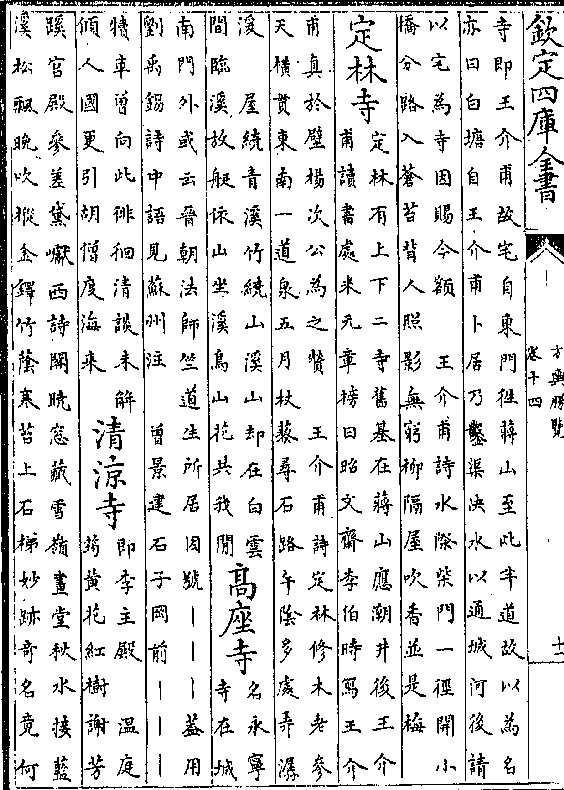 欽定四庫全書
方輿勝覽
卷十四
十一
寺即王介甫故宅自東門徃蔣山至此半道故以為名
亦曰白塘自王介甫卜居乃鑿渠决水以通城河後請
以宅為寺因賜今額 王介甫詩水際柴門一徑開小
橋分路入蒼苔背人照影無窮柳隔屋吹香並是梅
定林寺 定林有上下二寺舊基在蔣山應潮井後王介
甫讀書處米元章榜曰昭文齋李伯時寫王介
甫真於壁楊次公為之贊 王介甫詩定林修木老參
天横貫東南一道泉五月杖藜尋石路午陰多處弄潺
湲 屋繞青溪竹繞山溪山却在白雲
間臨溪放艇依山坐溪鳥山花共我閒
高座寺 名永寧
寺在城
南門外或云晉朝法師竺道生所居因號｜｜｜蓋用
劉禹錫詩中語見蘇州注 曾景建石子岡前｜｜｜
犢車曾向此徘徊清談未解
傾人國更引胡僧度海來
清涼寺 即李主殿 温庭
筠黄花紅樹謝芳
蹊宫殿參差黛巘西詩閣曉窓藏雪嶺畫堂秋水接藍
溪松飄晚吹摐金鐸竹蔭寒苔上石梯妙跡奇名竟何